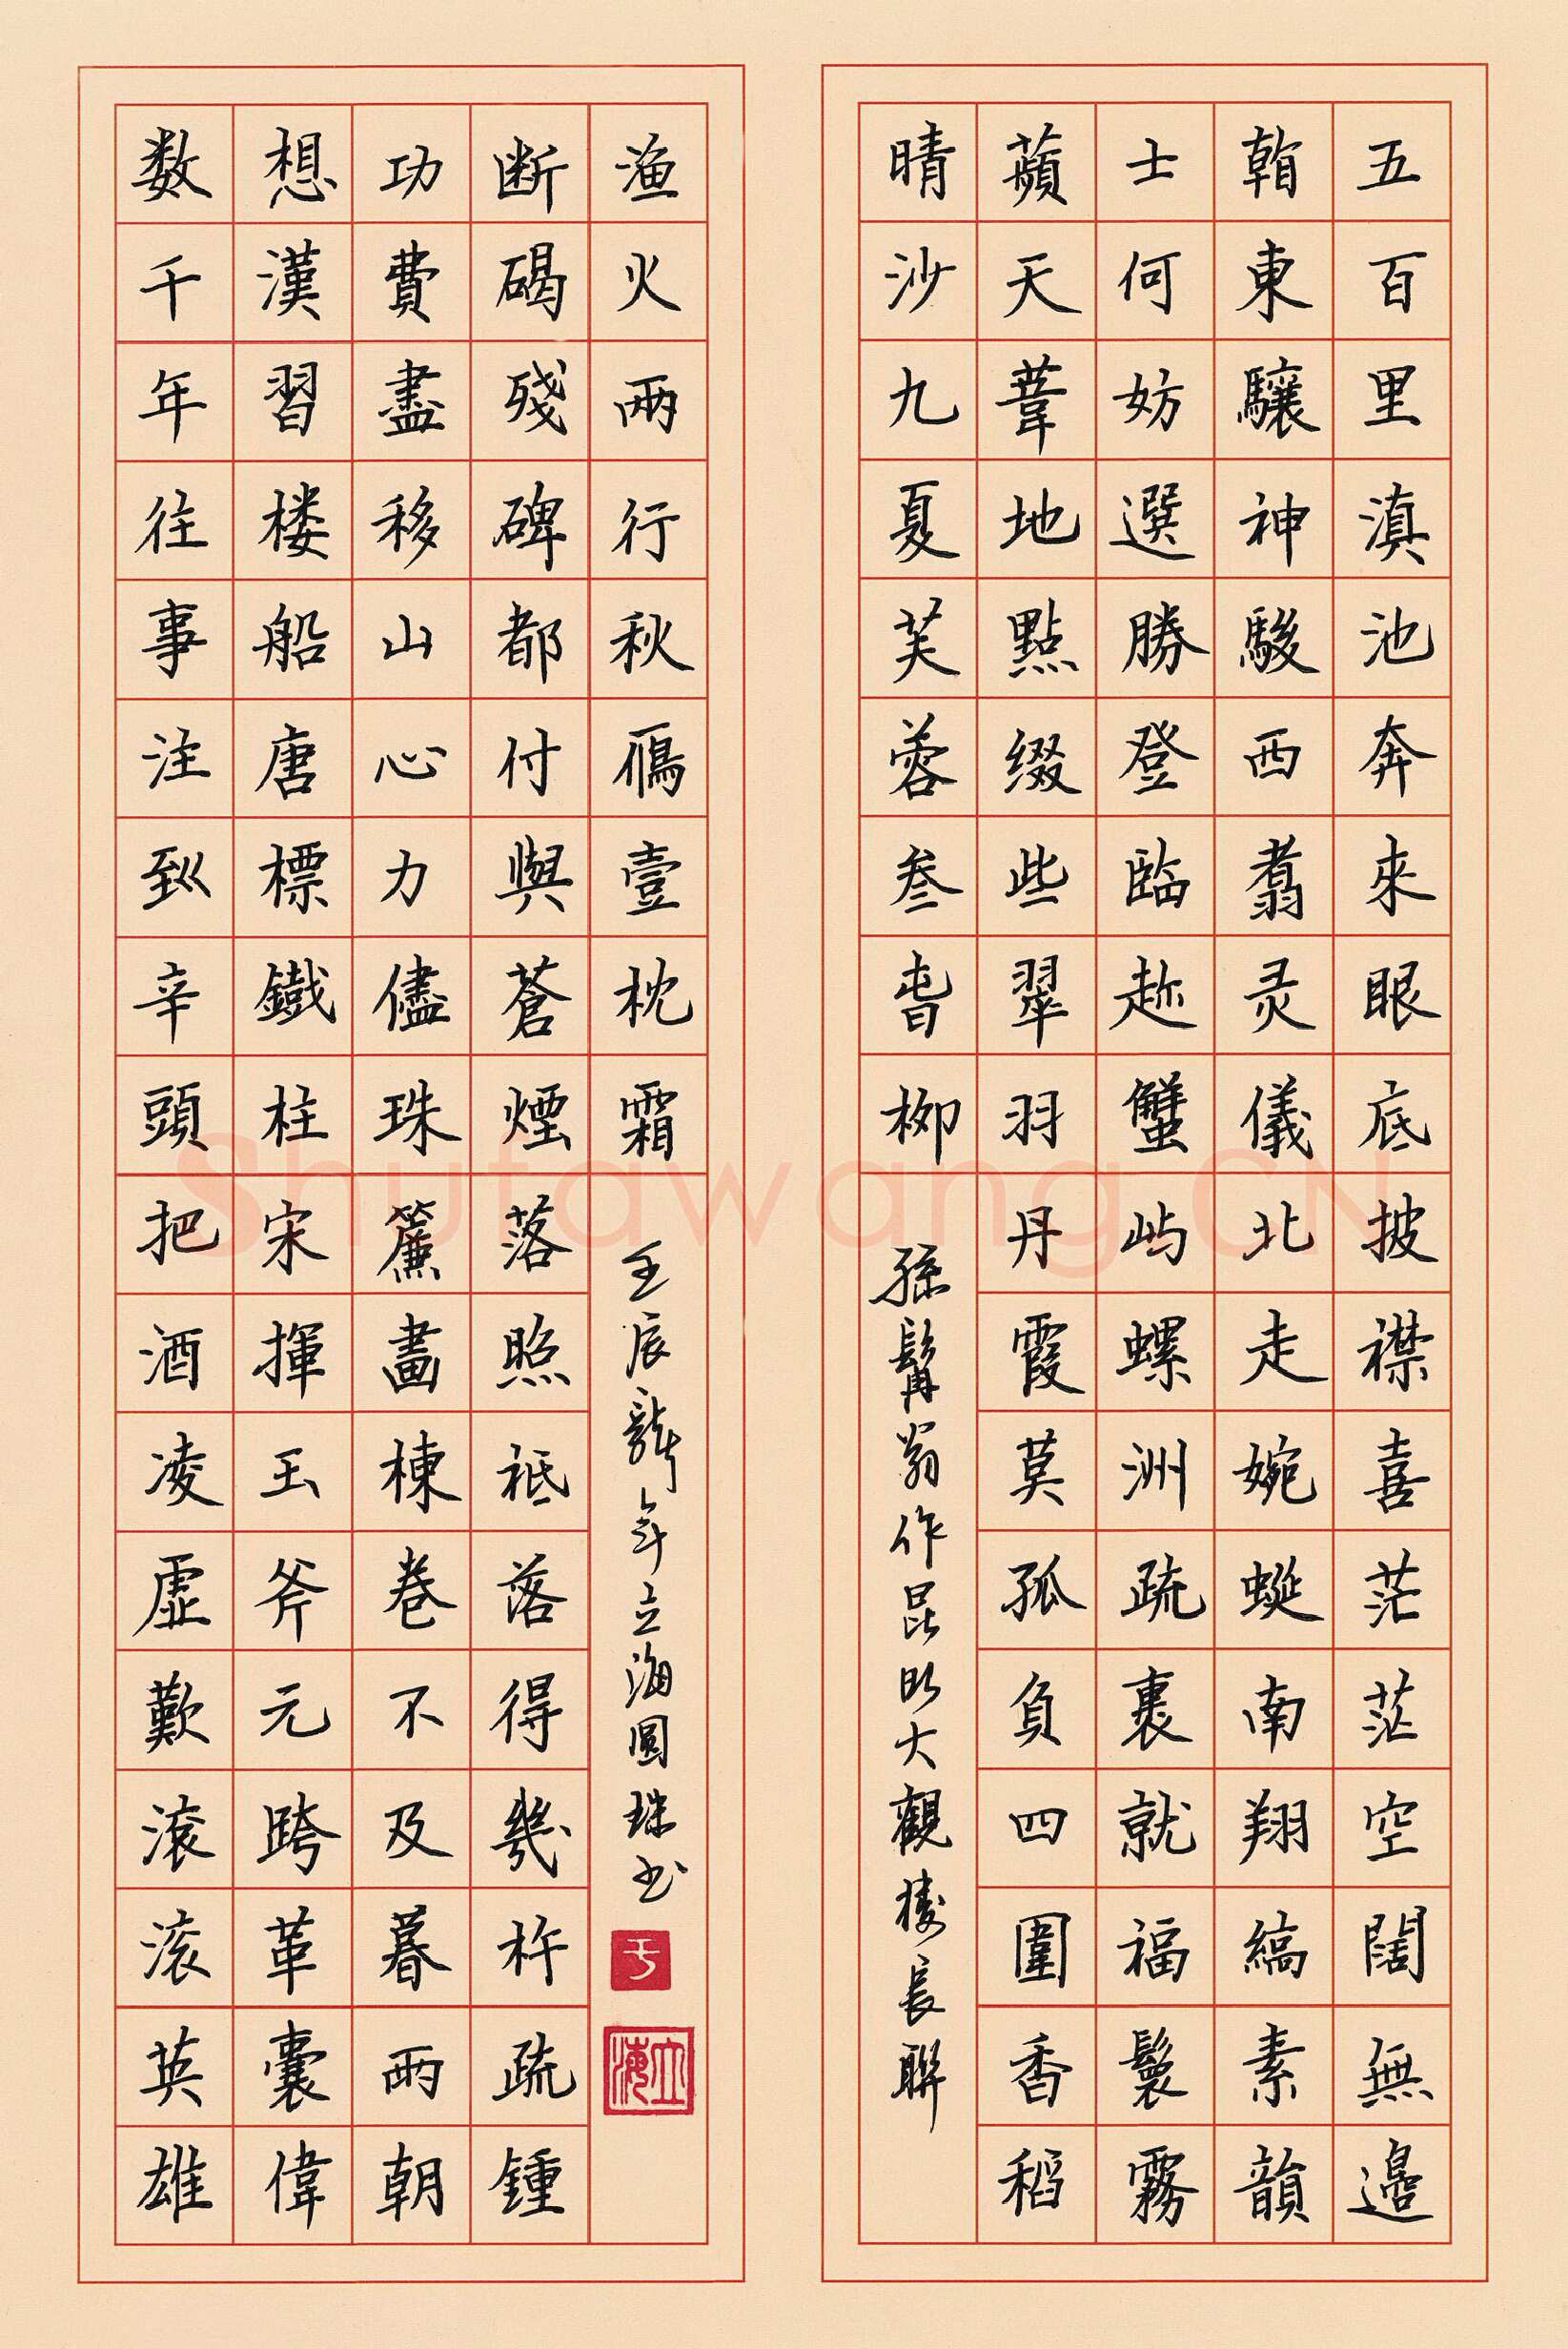 五百里滇池奔來眼底披襟喜茫茫空闊無邊
看東驤神駿西翥灵儀北走婉蜒南翔縞素韻
士何妨選勝登臨趂蟹屿螺洲疏裹就福鬟霧
蘋天葦地點缀些翠羽丹霞莫孤負四圍香稻
晴沙九夏芙蓉叁旾柳
孫髯翁作昆明大觀楼長聯
数千年往事注到辛頭把酒凌虛歎滚滚英雄
想漢習楼船唐標鐵柱宋揮玉斧元跨革囊偉
功費盡移山心力儘珠簾畫棟卷不及暮雨朝
断碣殘碑都付與蒼煙落照祗落得幾杵疏鍾
渔火兩行秋鴈壹枕霜
壬辰龍年立海圓珠书
于
立海
Shufawang.CN